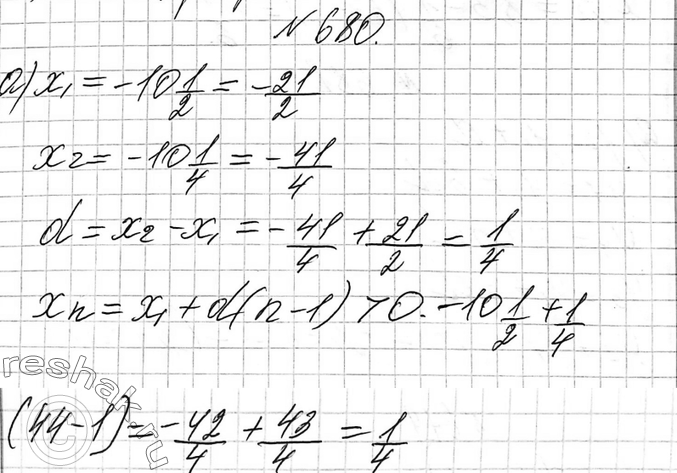 №680.
а) x₁ = -10 1/2 = -21/2
x₂ = -10 1/4 = -41/4
d = x₂ - x₁ = -41/4 + 21/2 = 1/4
xn = x₁ + d(n-1) > 0. -10 1/2 + 1/4
(44-1) = -42/4 + 43/4 = 1/4
©reshak.ru